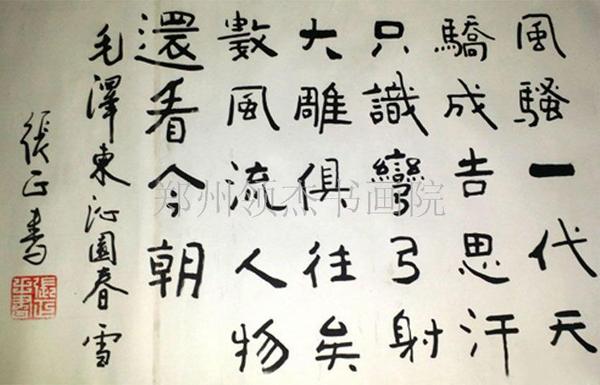 風騷一代天
驕成告思汗
只識彎弓射
大雕俱往矣
數風流人物
還看今朝
毛澤東沁園春雪
張正書
郑州领杰书画院